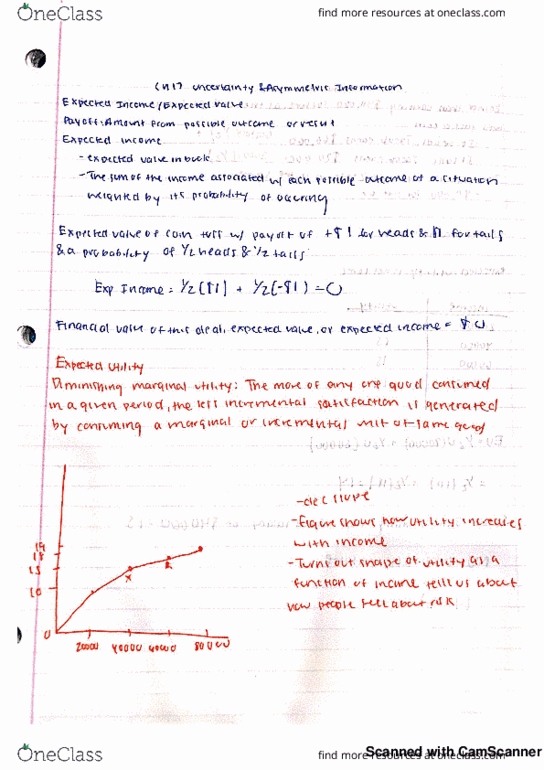 OneClass
find more resources at oneclass.com
CH17 Uncertainty & Asymmetric Information
Expected Income/Expected Value
Payoff: Amount from possible outcome or result
Expected income
- expected value in book
- The sum of the income associated w/ each possible outcome of a situation
weighted by its probability of occuring
Expected value of coin toss w/ payout of +$1 for heads & $1 for tails
& a probability of 1/2 heads & 1/2 tails
Exp Income = 1/2($1) + 1/2(-$1) = 0
Financial value of this deal, expected value, or expected income = $0
Expected Utility
Diminishing marginal utility: The more of any one good consumed
in a given period, the less incremental satisfaction is generated
by consuming a marginal or incremental unit of same good
- dec slope
- Figure shows how utility increases
with income
- Turns out shape of utility as a
function of income tells us about
how people feel about risk
18
15
10
0
20000 40000 60000 80000
x
OneClass
find more resources at oneclass.com
Scanned with CamScanner